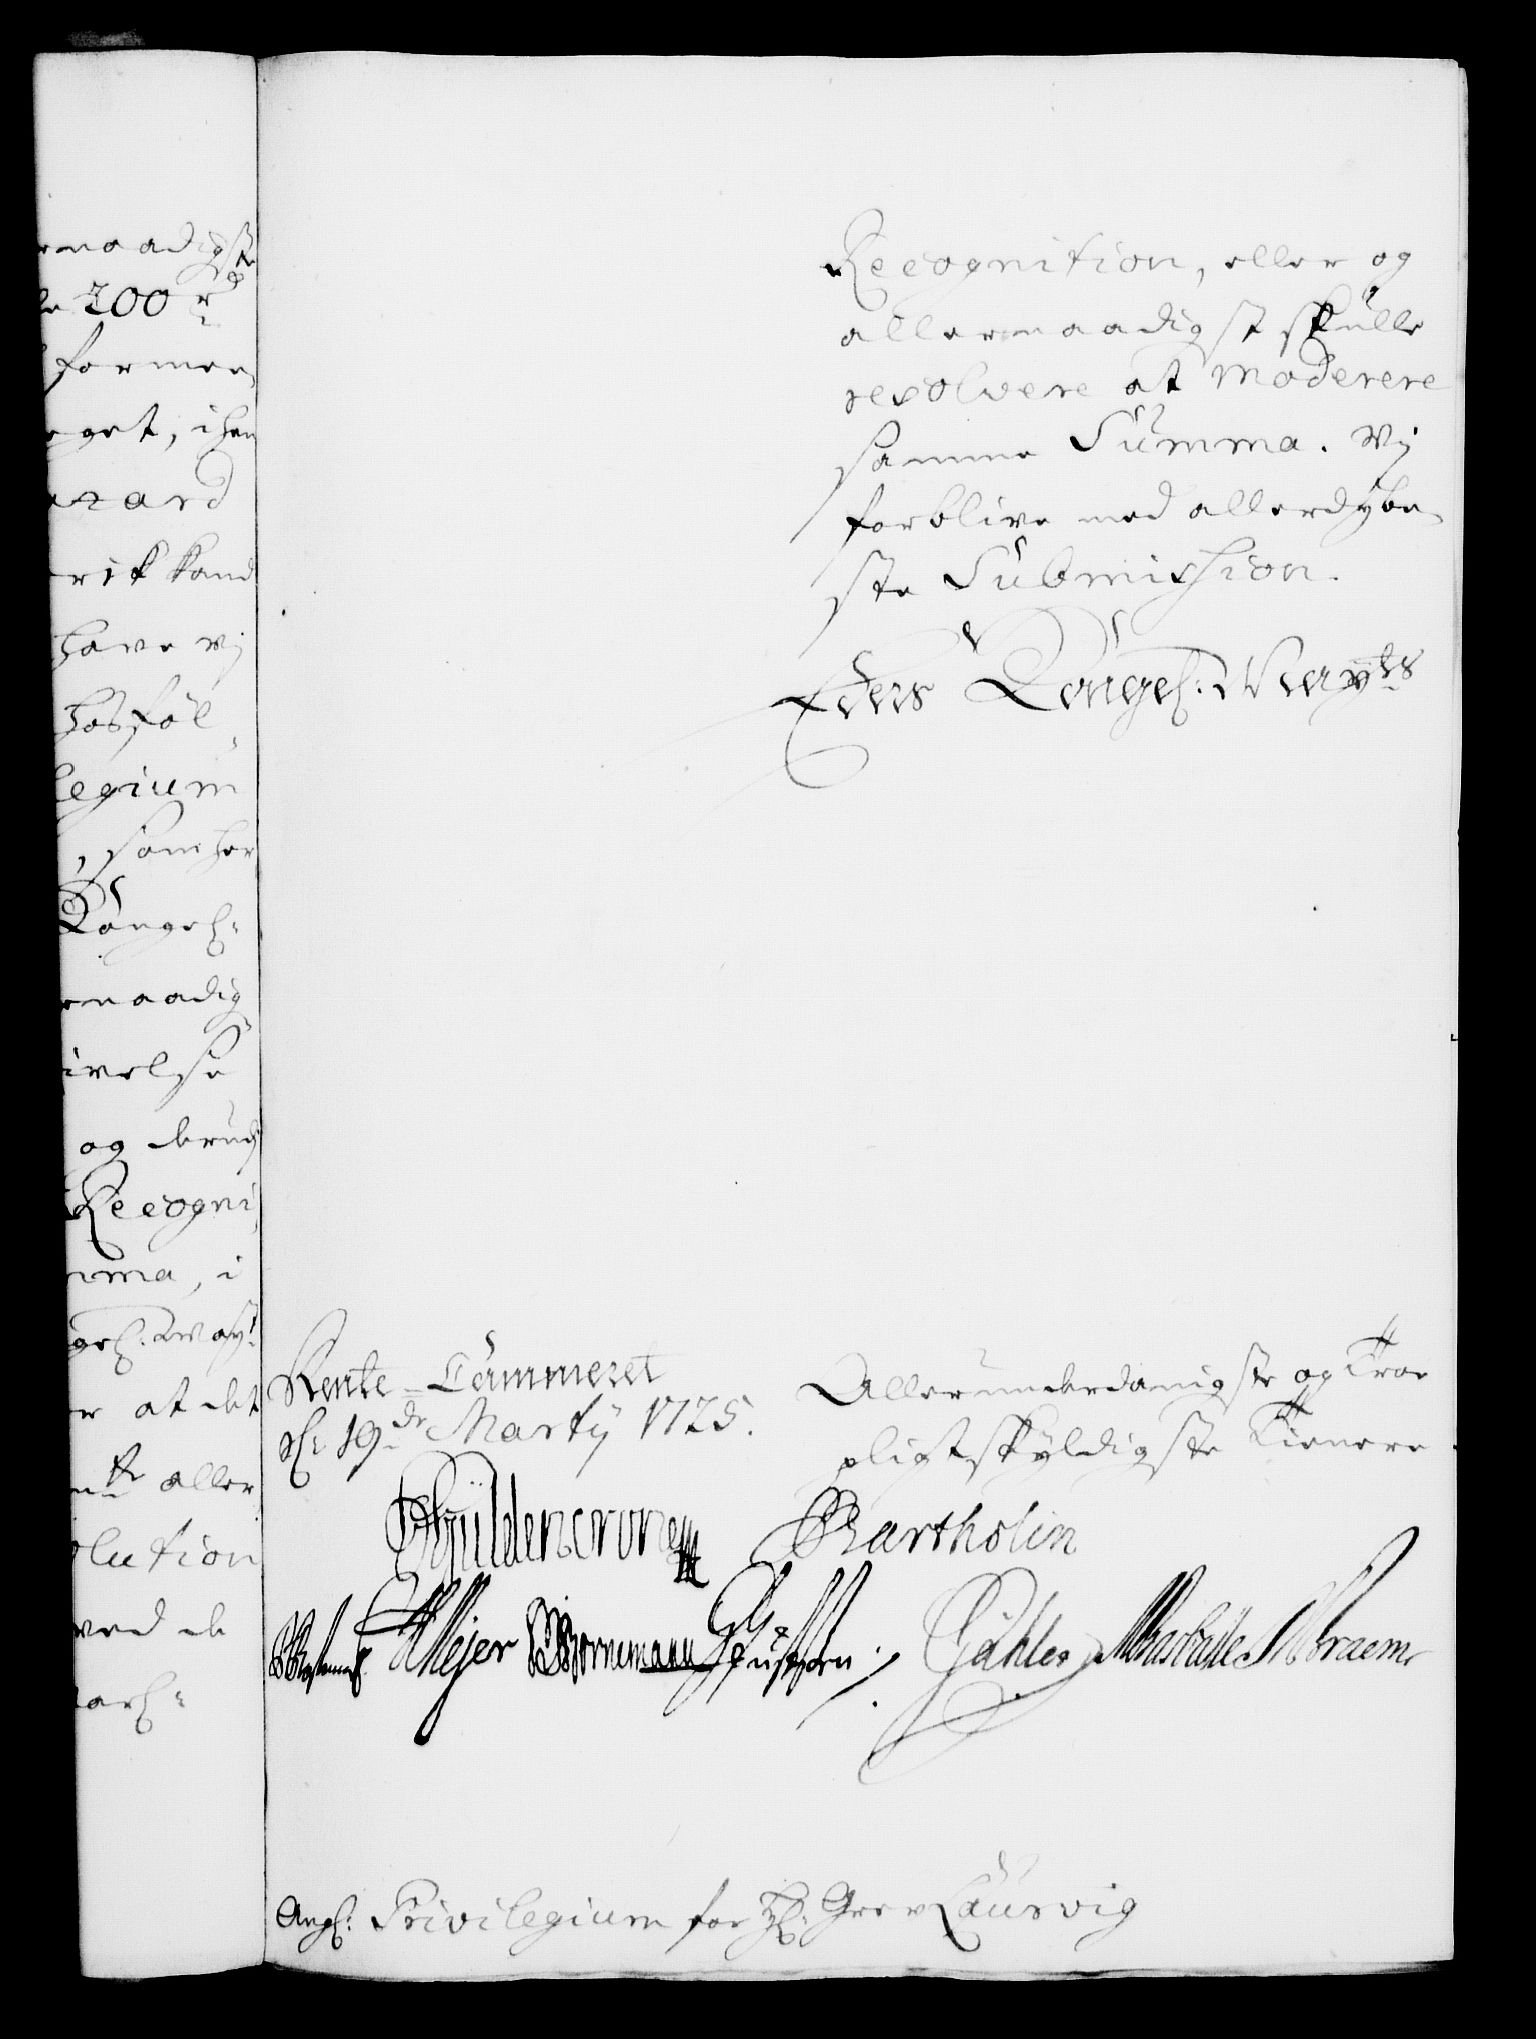 rnaadigste
le 200 rd
formen
eget, ihen
azard
rik kand
have vj
hosföl
legium
, som har
Kongel:
rnaadig
ivelse
og derud
Recogni
mma, i
gel: Mayt
r at det
nte aller
olution
ved de
arl:
Recognition, eller og
allernaadigst skulle
resolvere at moderere
samme Summa. Vj
forblive med allerdybe
ste Submission.
Eders Kongel: Mayts
Rente-Cammeret
dl: 19de Martij 1725.
Allerunderdanigste og Troe
pligtskyldigste Tienere
Güldencrone
Bartholin
Mejer Bornemann Gähler Braem
Angl: Privilegium for Hl: Grev Laurvig